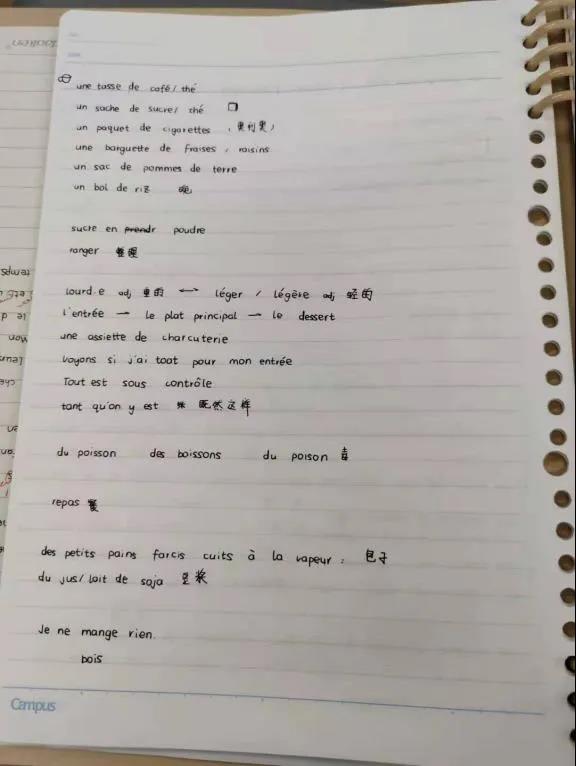 une tasse de café/thé
un sache de sucre/ thé
un paquet de cigarettes (奥利奥)
une barquette de fraises, raisins
un sac de pommes de terre
un bol de riz 碗
sucre en poudre
ranger 整理
lourd.e adj 重的 ↔ léger / légère adj 轻的
l'entrée → le plat principal → le dessert
une assiette de charcuterie
voyons si j'ai toat pour mon entrée
Tout est sous contrôle
tant qu'on y est 既然这样
du poisson des boissons du poison 毒
repas 餐
des petits pains farcis cuits à la vapeur : 包子
du jus/lait de soja 豆浆
Je ne mange rien.
bois
Campus